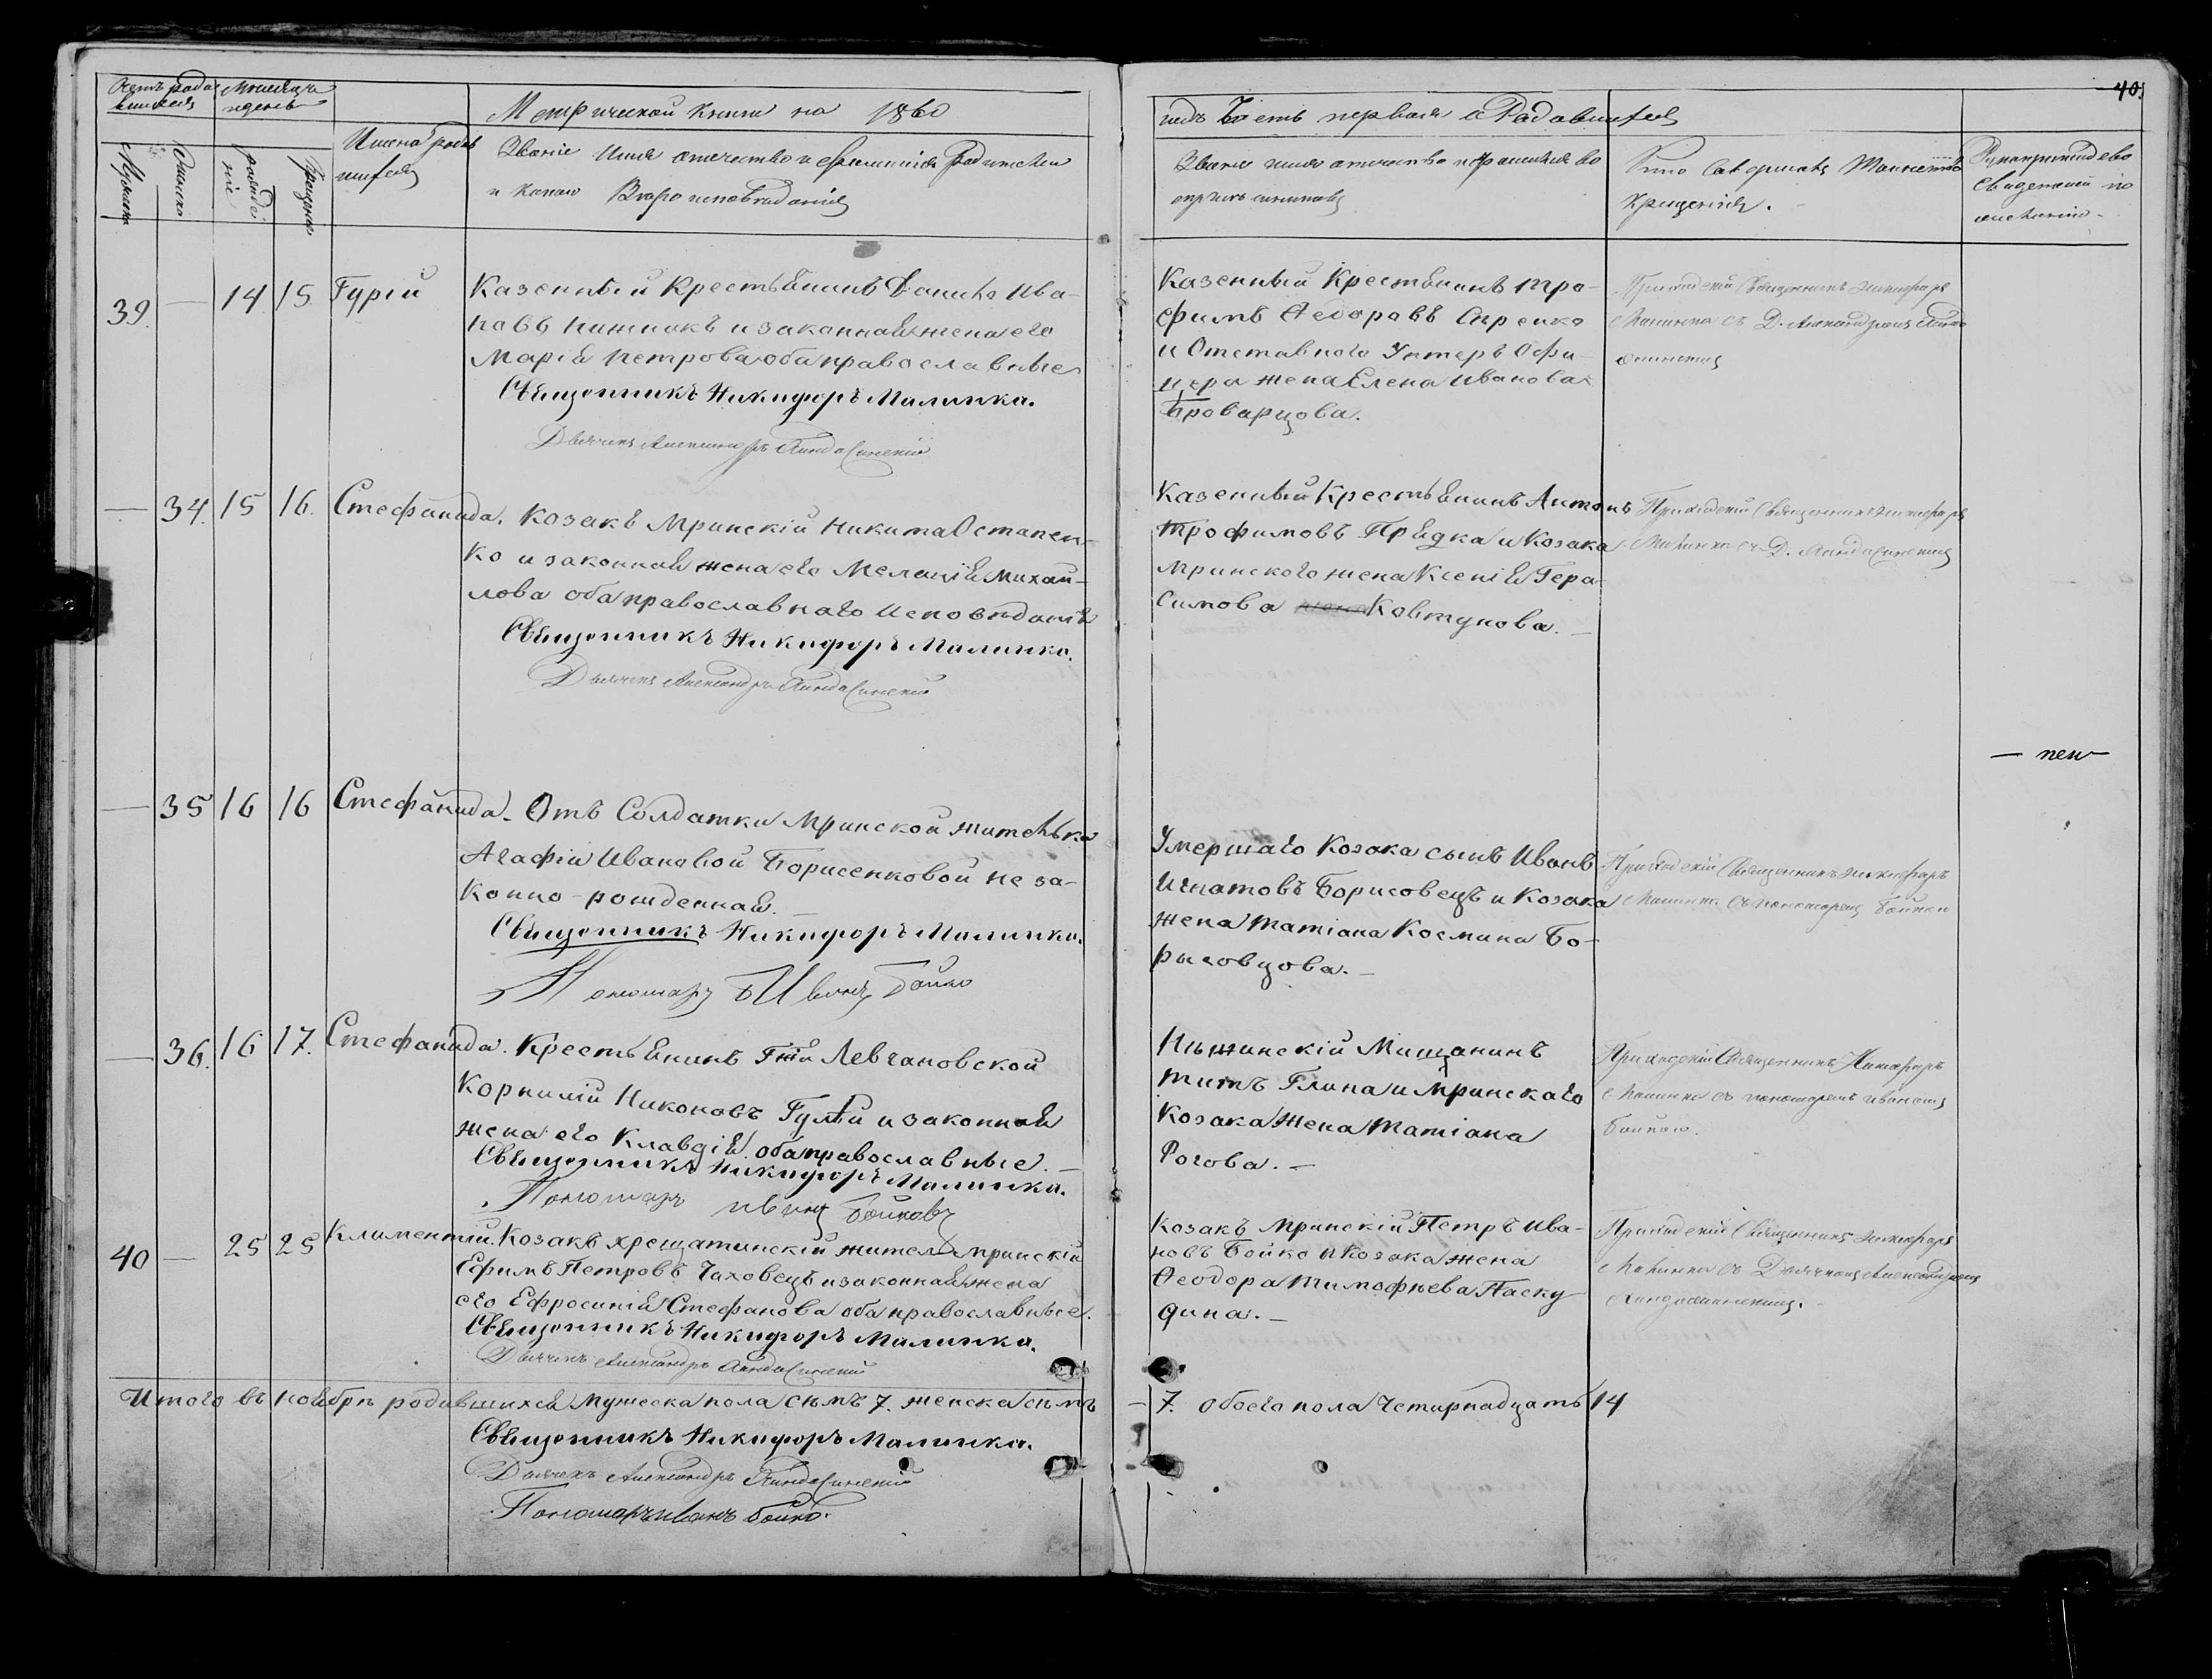 40.
Метрической книги на 1860
годъ Часть первая о Родившихся
Счетъ родившихся
Мужеска
Женска
Мѣсяцъ и день
рожденія
Крещенія
Имена родившихся
Званіе Имя отчество и фамилія Родителей
и какого Вѣроисповѣданія
Званіе имя отчество и фамилія восприемниковъ
Кто совершалъ Таинство
Крещенія.
Рукоприкладство
свидетелей по
желанію.
39. — 14 15 Гурій
Казенный Крестьянинъ Данило Ива-
новъ Пижикъ и законная жена его
Марія Петрова оба православные
Священникъ Никифоръ Малинка.
Дьячекъ Александръ
Казенный Крестьянинъ Тро-
фимъ Ѳедоровъ Сиренко
и Отставного Унтеръ Офи-
цера жена Елена Иванова
Броварцова.
Приходскій Священникъ Никифоръ
Малинка съ Д. Александромъ
— 34. 15 16. Стефанида.
Козакъ Мринскій Никита Остапен-
ко и законная жена его Меланія Михай-
лова оба православнаго исповѣданія
Священникъ Никифоръ Малинка.
Дьячекъ Александръ
Казенный Крестьянинъ Антонъ
Трофимовъ Прядка и Козака
Мринского жена Ксенія Гера-
симова Ковтунова. —
Приходскій Священникъ Никифоръ
Малинка съ Д.
— 35 16 16 Стефанида.
Отъ Солдатки Мринской жителька
Агафіи Ивановой Борисенковой не за-
конно-рожденная. —
Священникъ Никифоръ Малинка.
Пономарь Иванъ Бойко
Умершаго Козака сынъ Иванъ
Игнатовъ Борисовецъ и Козака
жена Татіана Космина Бо-
рисовцова. —
Приходскій Священникъ Никифоръ
Малинка съ пономаремъ Бойком
— 36. 16 17. Стефанида.
Крестьянинъ Гжи Левчановской
Корнилій Никоновъ Гулѣй и законная
жена его Клавдія оба православные. —
Священникъ Никифоръ Малинка.
Пономарь Иванъ Бойковъ
Нѣжинскій Мищанинъ
Титъ Глина и Мринскаго
Козака жена Татіана
Рогова. —
Приходскій Священникъ Никифоръ
Малинка съ пономаремъ Иваномъ
Бойкою.
40 — 25 25 Климентій.
Козакъ хрещатинскій житель мринскій
Ефимъ Петровъ Чаховецъ и законная жена
его Ефросинія Стефанова оба православные.
Священникъ Никифоръ Малинка.
Дьячекъ Александръ
Козакъ Мринскій Петръ Ива-
новъ Бойко и Козака жена
Ѳеодора Тимофѣева Паску-
дина. —
Приходскій Священникъ Никифоръ
Малинка съ Дьячкомъ Александромъ
Итого въ ноябрѣ родившихся мужеска пола сѣмъ 7. женска сѣмъ — 7. обоего пола Четирнадцать 14
Священникъ Никифоръ Малинка.
Дьячекъ Александръ
Пономарь Иванъ Бойко.